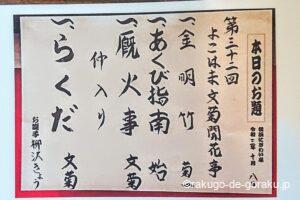 本日のお題
横浜にぎわい座
第三十二回
よこはま文菊開花亭
一、金明竹 菊
一、あくび指南 始
一、厩火事 文菊
仲入り
一、らくだ 文菊
お囃子 柳沢きょう
©rakugo-de-goraku.jp